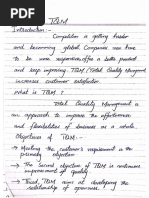 TQM
Introduction:-
Competition is getting harder
and becoming global. Companies now have
to be more responsive, offer a better product
and keep improving. TQM (Total Quality Management)
increases customer satisfaction.
What is TQM?
Total Quality Management is
an approach to improve the effectiveness
and flexibilities of business as a whole
Objectives of TQM:-
→ Meeting the customer's requirement is the
primary objective
→ The second objective of TQM is continuous
improvement of quality
→ Third TQM aims at developing the
relationship of openness &